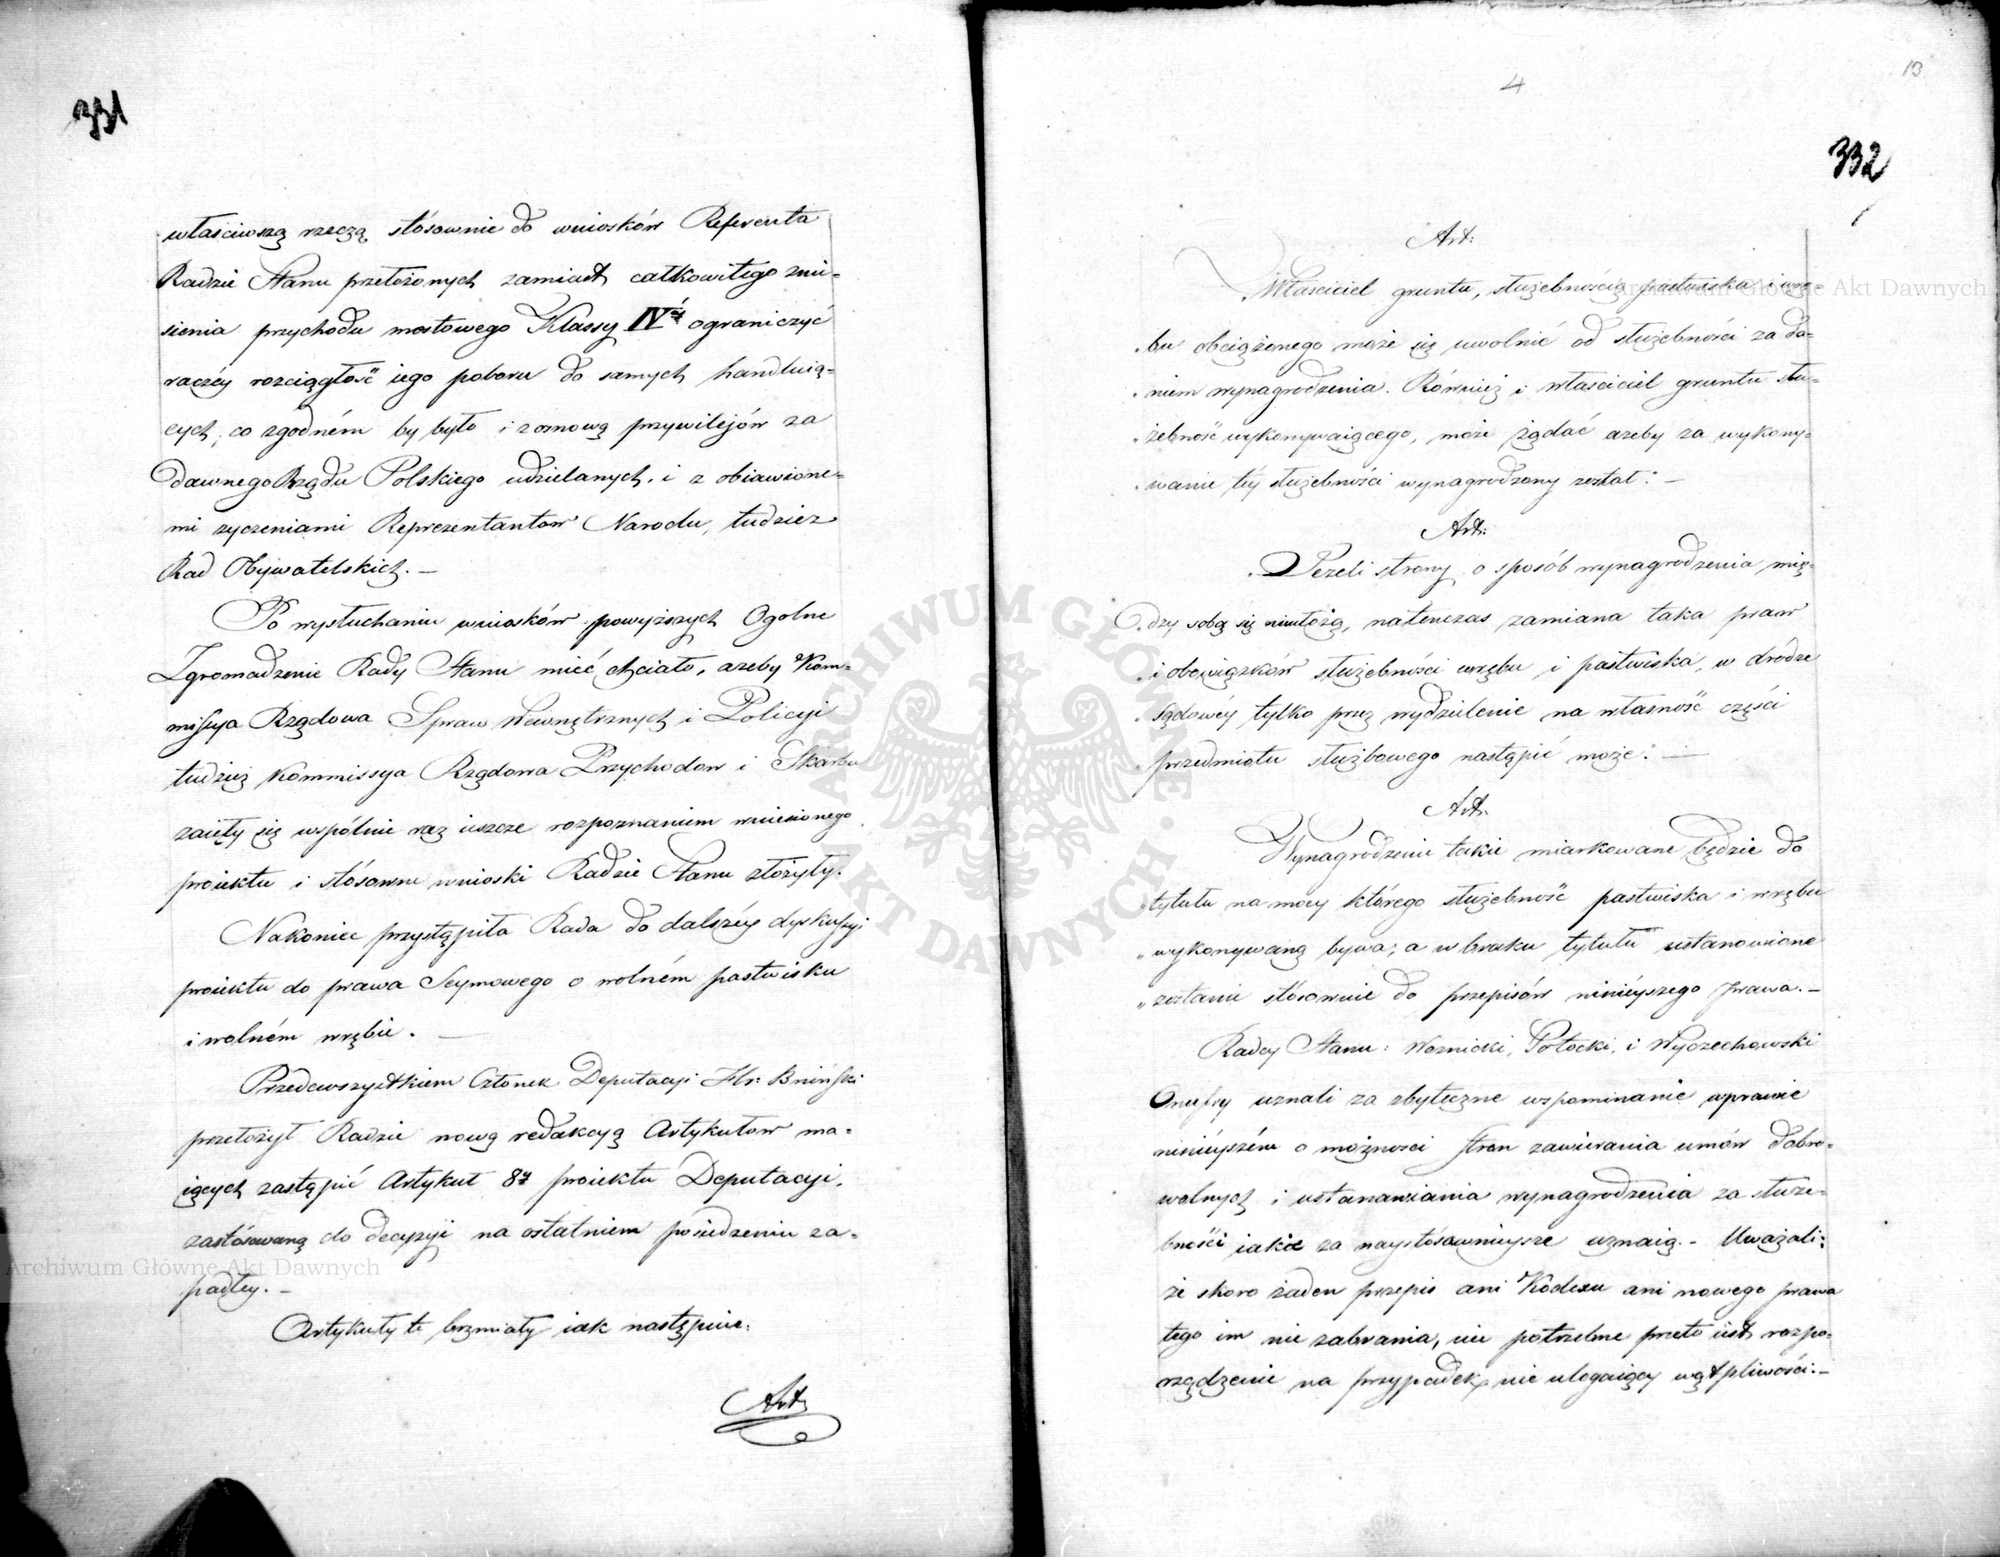 331
właściwszą rzeczą stósownie do wniosków Referenta
Radzie Stanu przełożonych zamiast całkowitego znie-
sienia przychodu mostowego Klassy IVéy ograniczyć
raczéy rozciągłość iego poboru do samych handluią-
cych, co zgodném by było i z osnową przywilejów za
dawnego Rządu Polskiego udzielanych, i z obiawione-
mi zyczeniami Reprezentantow Narodu, tudziez
Rad Obywatelskich. —
Po wysłuchaniu wniosków powyższych Ogolne
Zgromadzenie Rady Stanu mieć chciało, azeby Kom-
missya Rządowa Spraw Wewnętrznych i Policyi
tudzież Kommissya Rządowa Przychodow i Skarbu
zaięły się wspólnie raz ieszcze rozpoznaniem wniesionego
proiektu i stósowne wnioski Radzie Stanu złożyły.
Nakoniec przystąpiła Rada do dalszéy dyskussyi
proiektu do prawa Seymowego o wolném pastwisku
i wolném wrębie. —
Przedewszystkiem Członek Deputacyi Hr. Bniński
przełożył Radzie nową redakcyą Artykułow ma-
iących zastąpić Artykuł 87 proiektu Deputacyi,
zastósowaną do decyzyi na ostatniem posiedzeniu za-
padłey. —
Artykuły te brzmiały iak następuie:
Art:
4
13
332
Art:
„Właściciel gruntu, służebnością pastwiska i wrę-
„bu obciążonego może się uwolnić od służebności za da-
„niem wynagrodzenia. Również i właściciel gruntu słu-
„żebność wykonywaiącego, może żądać azeby za wykony-
„wanie téy służebności wynagrodzony został: —
Art:
„Jezeli strony o sposób wynagrodzenia mię-
„dzy sobą się nieułożą, natenczas zamiana taka praw
„i obowiązków służebności wrębu i pastwiska, w drodze
„sądowéy tylko przez wydzielenie na własność części
„przedmiotu służbowego nastąpić może: —
Art:
„Wynagrodzenie takie miarkowane będzie do
„tytułu na mocy którego służebność pastwiska i wrębu
„wykonywaną bywa; a w braku tytułu ustanowione
„zostanie stósownie do przepisów ninieyszego prawa. —
Radcy Stanu: Woznicki, Potocki, i Wyczechowski
Onufry uznali za zbyteczne wspominanie w prawie
ninieyszém o możności stron zawierania umów dobro-
wolnych i ustanawiania wynagrodzenia za służe-
bności iakie za naystósownieysze uznaią. — Uważali:
że skoro żaden przepis ani Kodexu ani nowego prawa
tego im nie zabrania, nie potrzebne przeto iest rozpo-
rządzenie na przypadek nie ulegaiący wątpliwości: —
Archiwum Główne Akt Dawnych
Archiwum Główne Akt Dawnych
ARCHIWUM GŁÓWNE AKT DAWNYCH